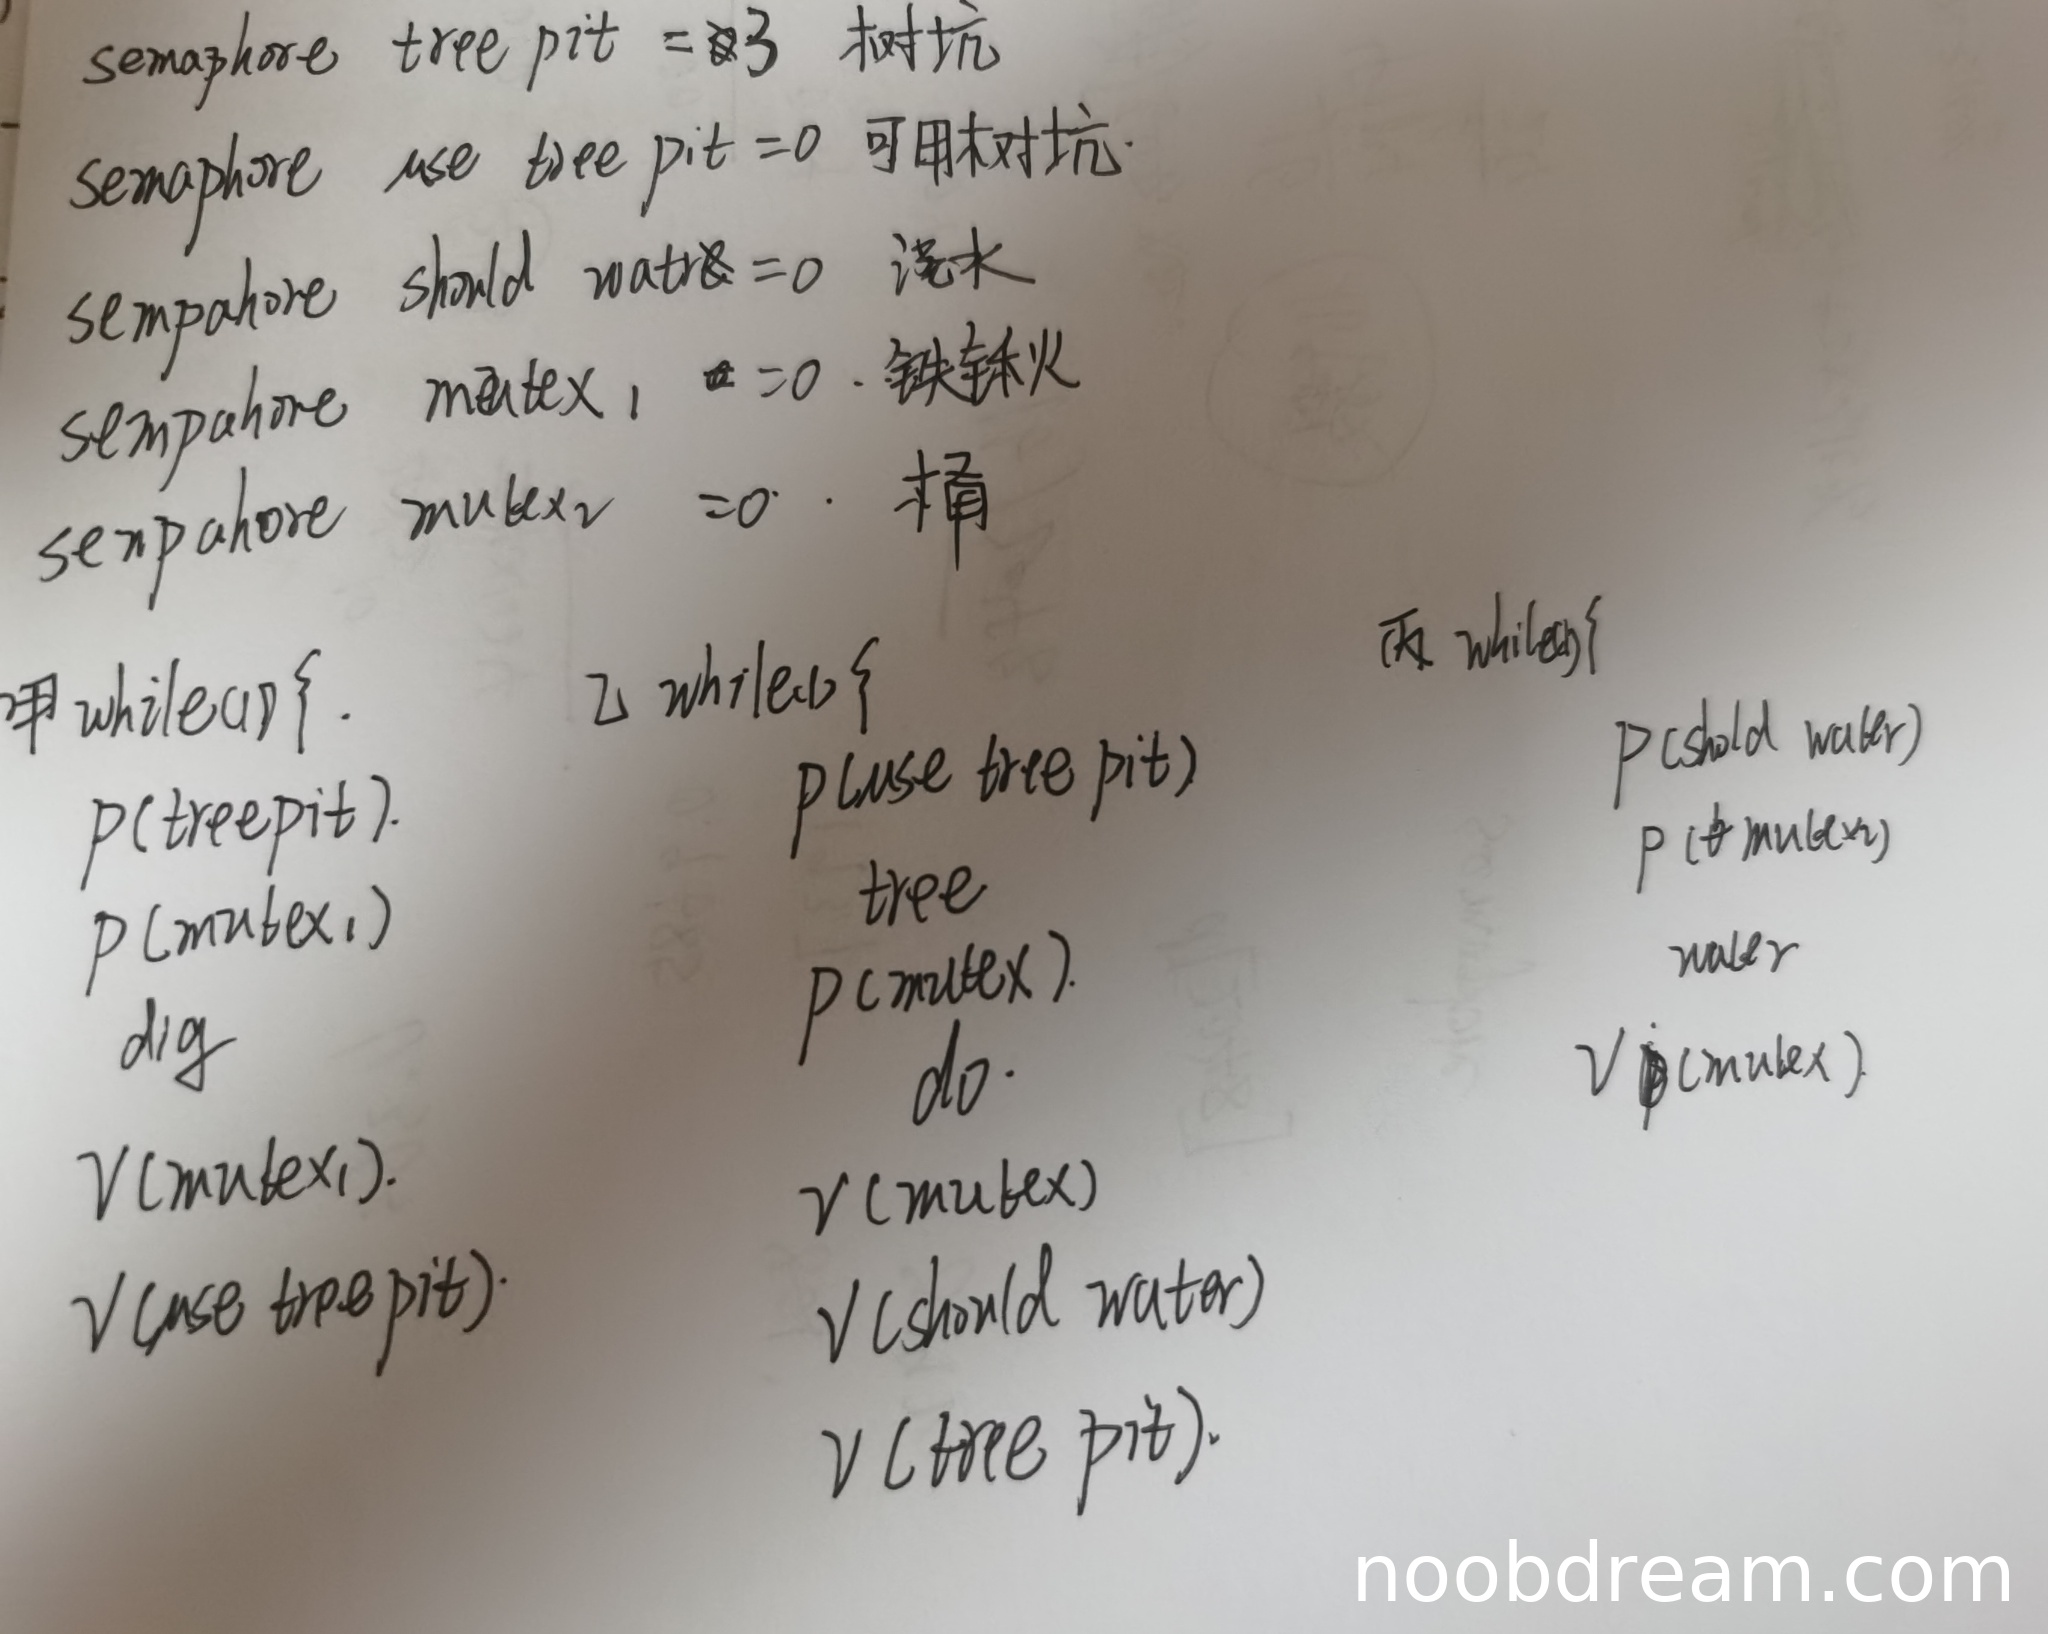 semaphore tree pit = 3 树坑
semaphore use tree pit =0 可用树坑.
sempahore should watre =0 浇水
sempahore mutex1 =0 . 铁锹
sempahore mutex2 =0 . 桶
甲 while(1){.
p(treepit).
p(mutex1)
dig
V(mutex1).
V(use treepit).
乙 while(1){
p(use tree pit)
tree
p(mutex).
do.
V(mutex)
V(should water)
V(tree pit).
丙 while(1){
p(shold water)
p(mutex2)
water
V(mutex).
noobdream.com